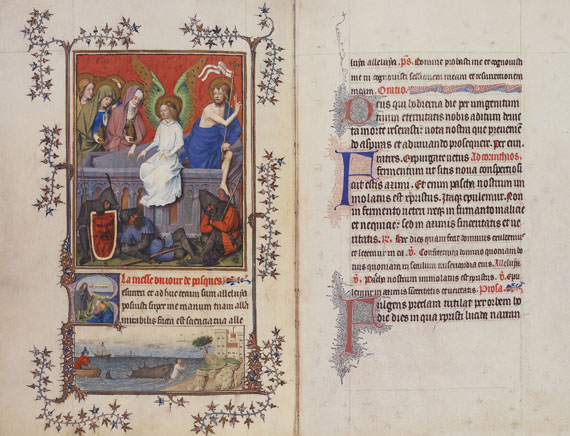 La messe du iour de pasques
esurrexi et adhuc tecum sum alleluya
posuisti super me manum tuam alla
mirabilis facta est sciencia alle
luya alleluya. ps. Domine probasti me et cognouisti
me tu cognouisti sessionem meam et resurrectionem
meam. Oratio.
Deus qui hodierna die per unigenitum
tuum eternitatis nobis aditum deuic
ta morte reserasti: uota nostra que preueniendo
aspiras et adiuuando prosequere. Per eun
Fratres. Expurgate uetus Ad corinthios.
fermentum ut sitis noua conspersio
sicut estis azimi. Et enim pascha nostrum im
molatus est xpistus. Itaque epulemur. Non
in fermento ueteri neque in fermento malicie
et nequicie: sed in azimis sinceritatis et ue
ritatis. Hec dies quam fecit dominus exultemur
et letemur in ea. Confitemini domino quoniam bo
nus quoniam in seculum misericordia eius. Alleluya.
Pascha nostrum immolatus est xpistus. epu
lemur in azimis sinceritatis et ueritatis. Prosa.
Fulgens preclara rutilat per orbem ho
die dies in qua xpristi lucida narran